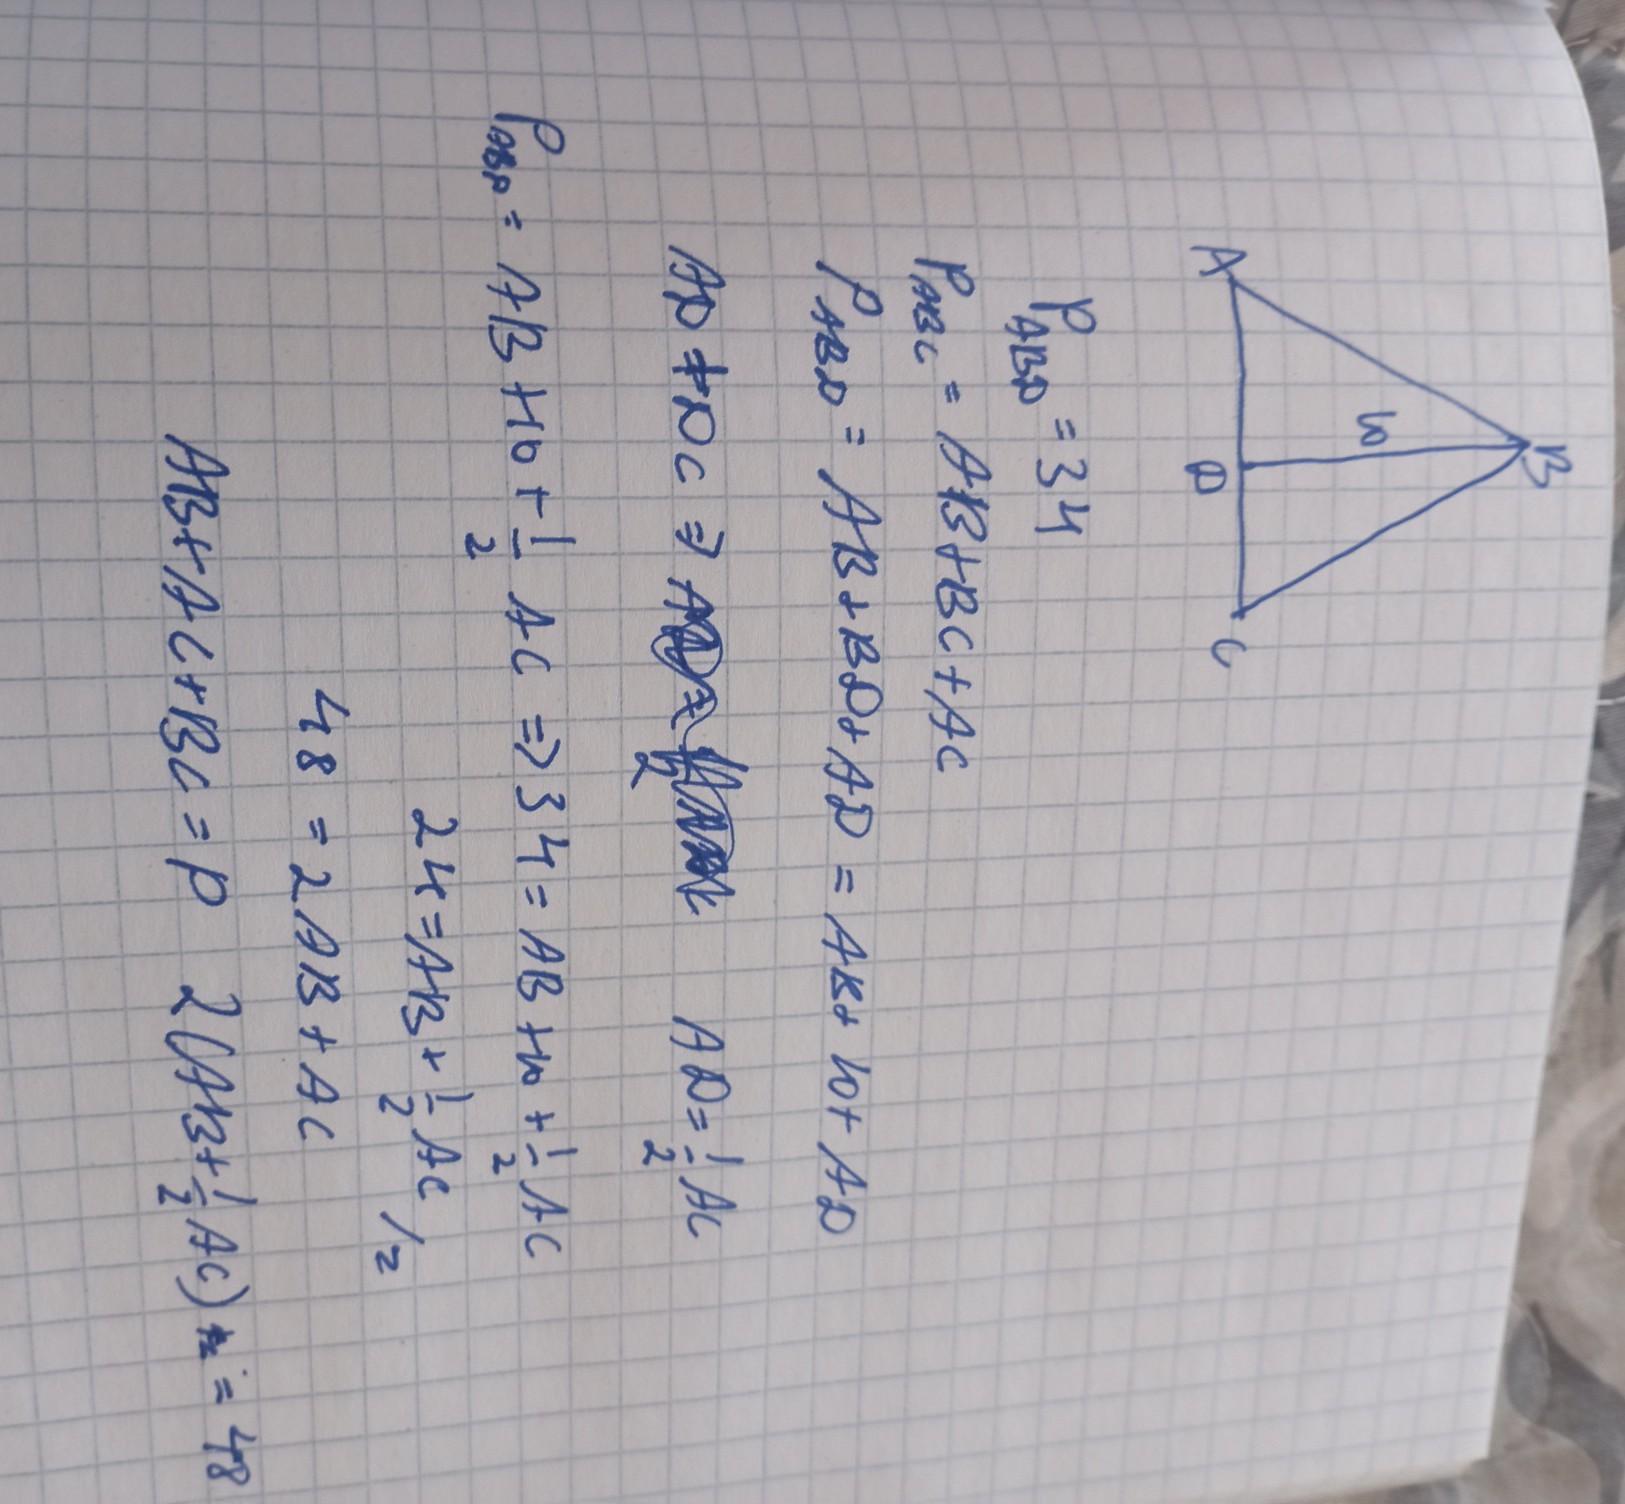 B
10
A D C
P ABD = 34
P ABC = AB + BC + AC
P ABD = AB + BD + AD = AB + 10 + AD
AD = DC ⇒ AD = 1/2 AC
P ABD = AB + 10 + 1/2 AC ⇒ 34 = AB + 10 + 1/2 AC
24 = AB + 1/2 AC /2
48 = 2AB + AC
AB + AC + BC = P 2(AB + 1/2 AC) = 48